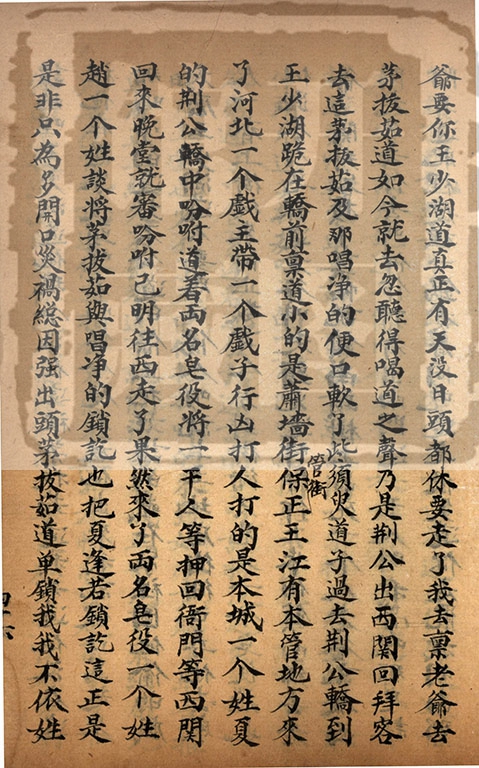 爺要你王少湖道真正有天没日頭都休要走了我去禀老爺去
茅拔茹道如今就去忽聽得喝道之聲乃是荆公出西關回拜客
去這茅拔茹及那唱净的便口軟了些須臾道子過去荆公轎到
王少湖跪在轎前禀道小的是蕭墻街保正王江有本管地方來
管街
了河北一个戲主帶一个戲子行凶打人打的是本城一个姓夏
的荆公轎中吩咐道着両名皂役將一干人等押回衙門等西関
回來晚堂就審吩咐已明徃西走了果然來了両名皂役一个姓
趙一个姓談將茅拔茹與唱净的鎖訖也把夏逢若鎖訖這正是
是非只為多開口災禍総因强出頭茅拔茹道单鎖我我不依姓